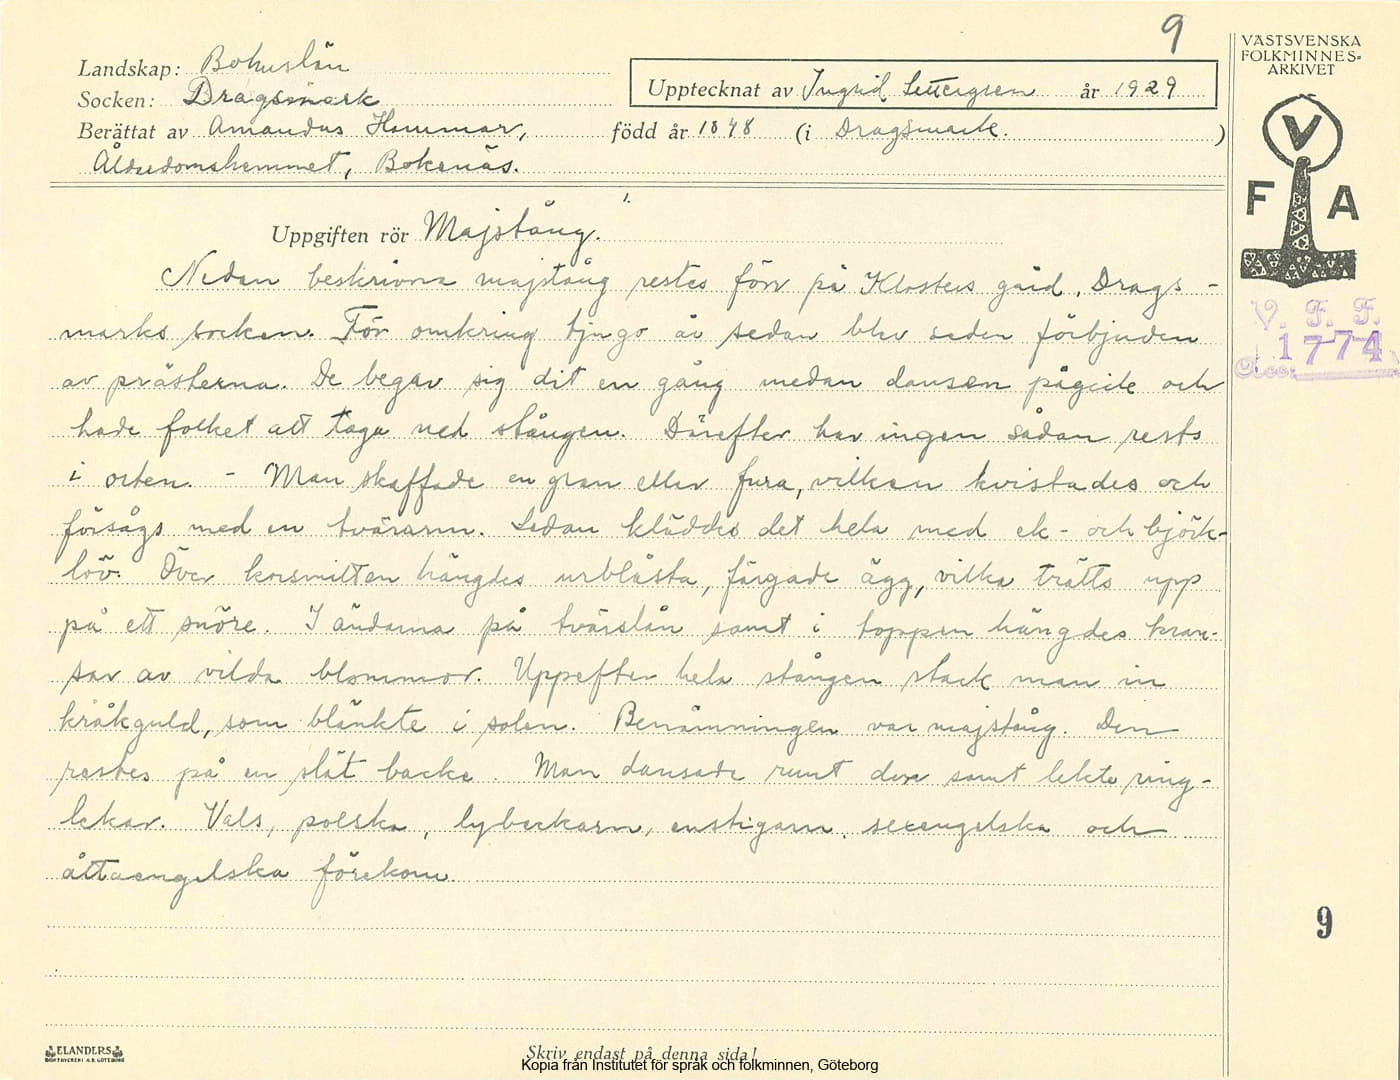 9
VÄSTSVENSKA
FOLKMINNES-
ARKIVET
Landskap: Bohuslän
Socken: Dragsmark
Upptecknat av Ingrid Settergren år 1929
Berättat av Amandus Hammar, född år 1848 (i Dragsmark. )
Ålderdomshemmet, Bokenäs.
V
F A
Uppgiften rör Majstång.
Nedan beskrivna majstång restes förr på Klosters gård, Drags-
marks socken. För omkring tjugo år sedan blev seden förbjuden
av prästerna. De begav sig dit en gång medan dansen pågick och
hade folket att taga ned stången. Därefter har ingen sådan rests
i orten. - Man skaffade en gran eller fura, vilken kvistades och
försågs med en tvärarm. Sedan kläddes det hela med ek- och björk-
löv. Över korsmitten hängdes urblåsta, färgade ägg, vilka trätts upp
på ett snöre. I ändarna på tvärslån samt i toppen hängdes kran-
sar av vilda blommor. Uppefter hela stången stack man in
kråkguld, som blänkte i solen. Benämningen var majstång. Den
restes på en slät backe. Man dansade runt den samt lekte ring-
lekar. Vals, polska, lybeckarn, enstigarn, sexengelska och
åttaengelska förekom.
V. F. F.
1774
Acc:
9
ELANDERS
BOKTRYCKERI A.B. GÖTEBORG
Skriv endast på denna sida!
Kopia från Institutet för språk och folkminnen, Göteborg